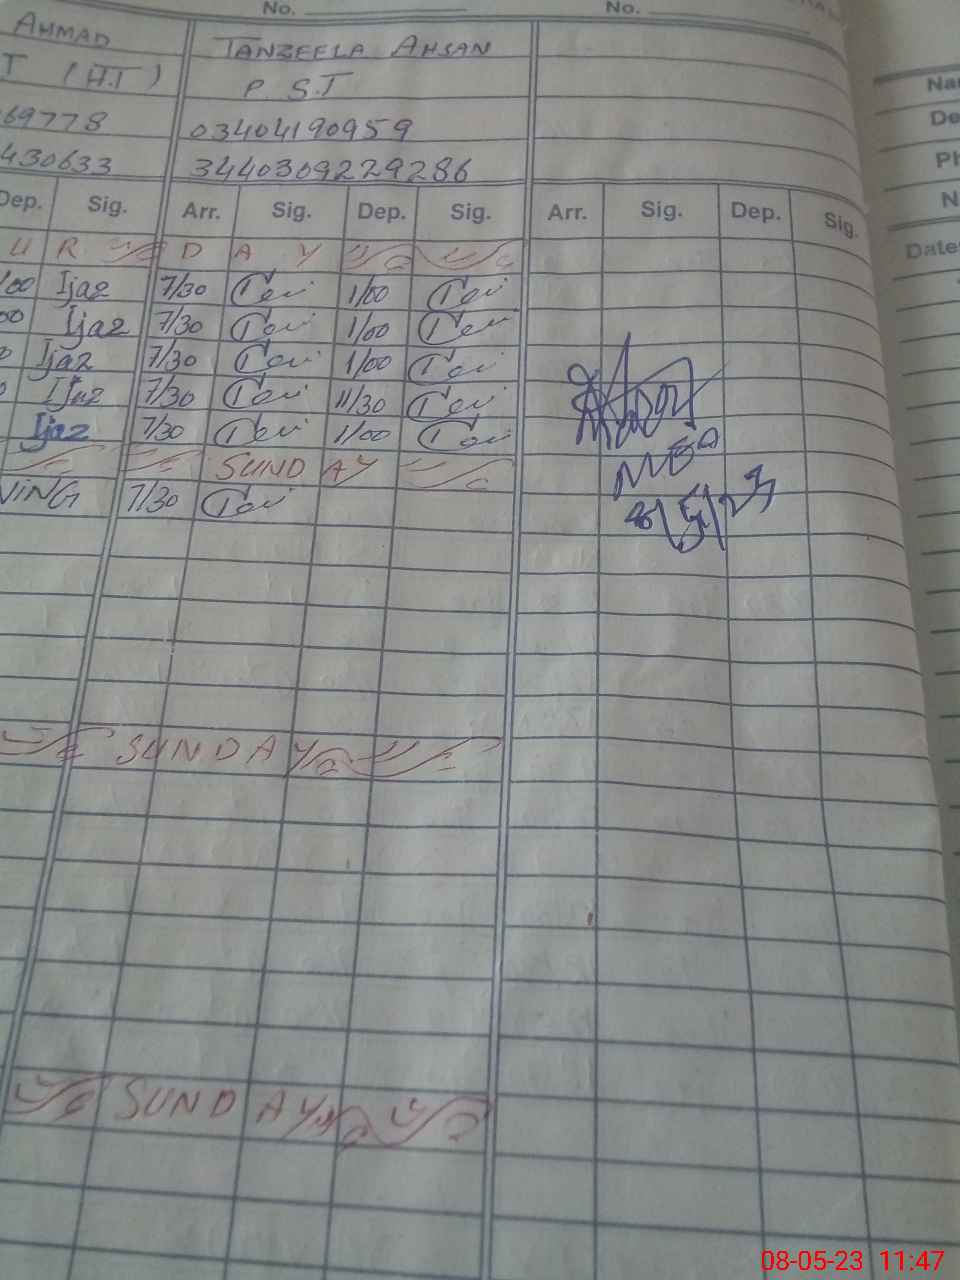 No. No.
AHMAD TANZEELA AHSAN
T (H.T) P S.T
69778 03404190959
430633 3440309229286
Dep. Sig. Arr. Sig. Dep. Sig. Arr. Sig. Dep. Sig.
U R D A Y
/00 Ijaz 7/30 1/00
00 Ijaz 7/30 1/00
Ijaz 7/30 1/00
Ijaz 7/30 11/30
Ijaz 7/30 1/00
SUNDAY
NING 7/30
MEA
8/5/23
SUNDAY
SUNDAY
Na
De
Ph
N
Date
08-05-23 11:47